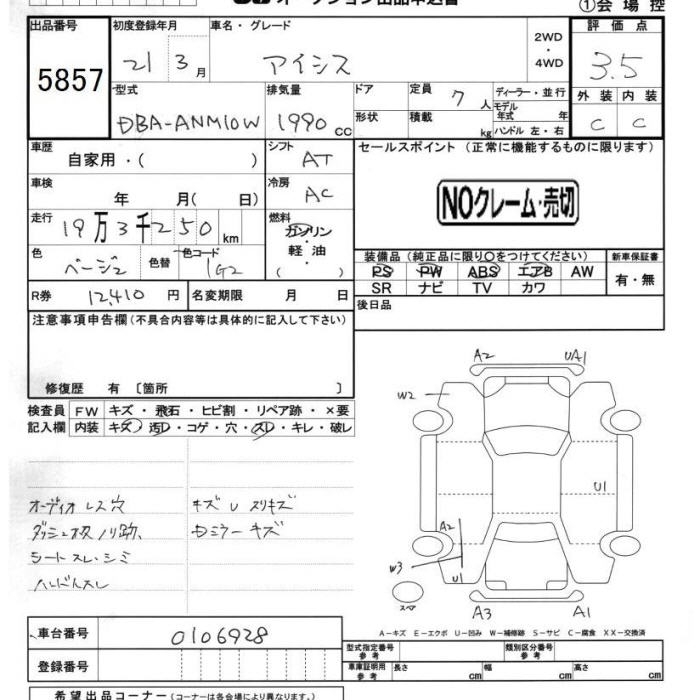 オークション出品申込書
①会場控
出品番号 初度登録年月 車名・グレード 2WD ・ 4WD 評価点
5857 21 3月 アイシス 3.5
型式 排気量 ドア 定員 7人 ディーラー・並行 外装 内装
DBA-ANM10W 1990cc 形状 積載 kg モデル年式 年 C C
ハンドル 左・右
車歴 自家用・( ) シフト AT セールスポイント (正常に機能するものに限ります)
車検 年 月(日) 冷房 AC
NOクレーム・売切
走行 19万3千250km 燃料 ガソリン
軽油
( )
色 ベージュ 色替 色コード 1G2
装備品(純正品に限り○をつけてください) 新車保証書
PS PW ABS エアB AW 有・無
SR ナビ TV カワ
R券 12,410円 名変期限 月 日 後日品
注意事項申告欄(不具合内容等は具体的に記入して下さい)
修復歴 有 [箇所 ]
検査員 FW キズ・飛石・ヒビ割・リペア跡・×要
記入欄 内装 キズ・汚レ・コゲ・穴・スレ・キレ・破レ
オーディオレス穴 キズU スリキズ
ダッシュ板ノリ跡、 Dミラーキズ
シートスレ・シミ
ハンドルスレ
A2 UA1
W2
U1
A2
W3
U1
スペア
A3 A1
A-キズ E-エクボ U-凹み W-補修跡 S-サビ C-腐食 XX-交換済
車台番号 0106928
型式指定番号 参考 類別区分番号 参考
登録番号
車庫証明用 参考 長さ cm 幅 cm 高さ cm
希望出品コーナー(コーナーは各会場により異なります。)